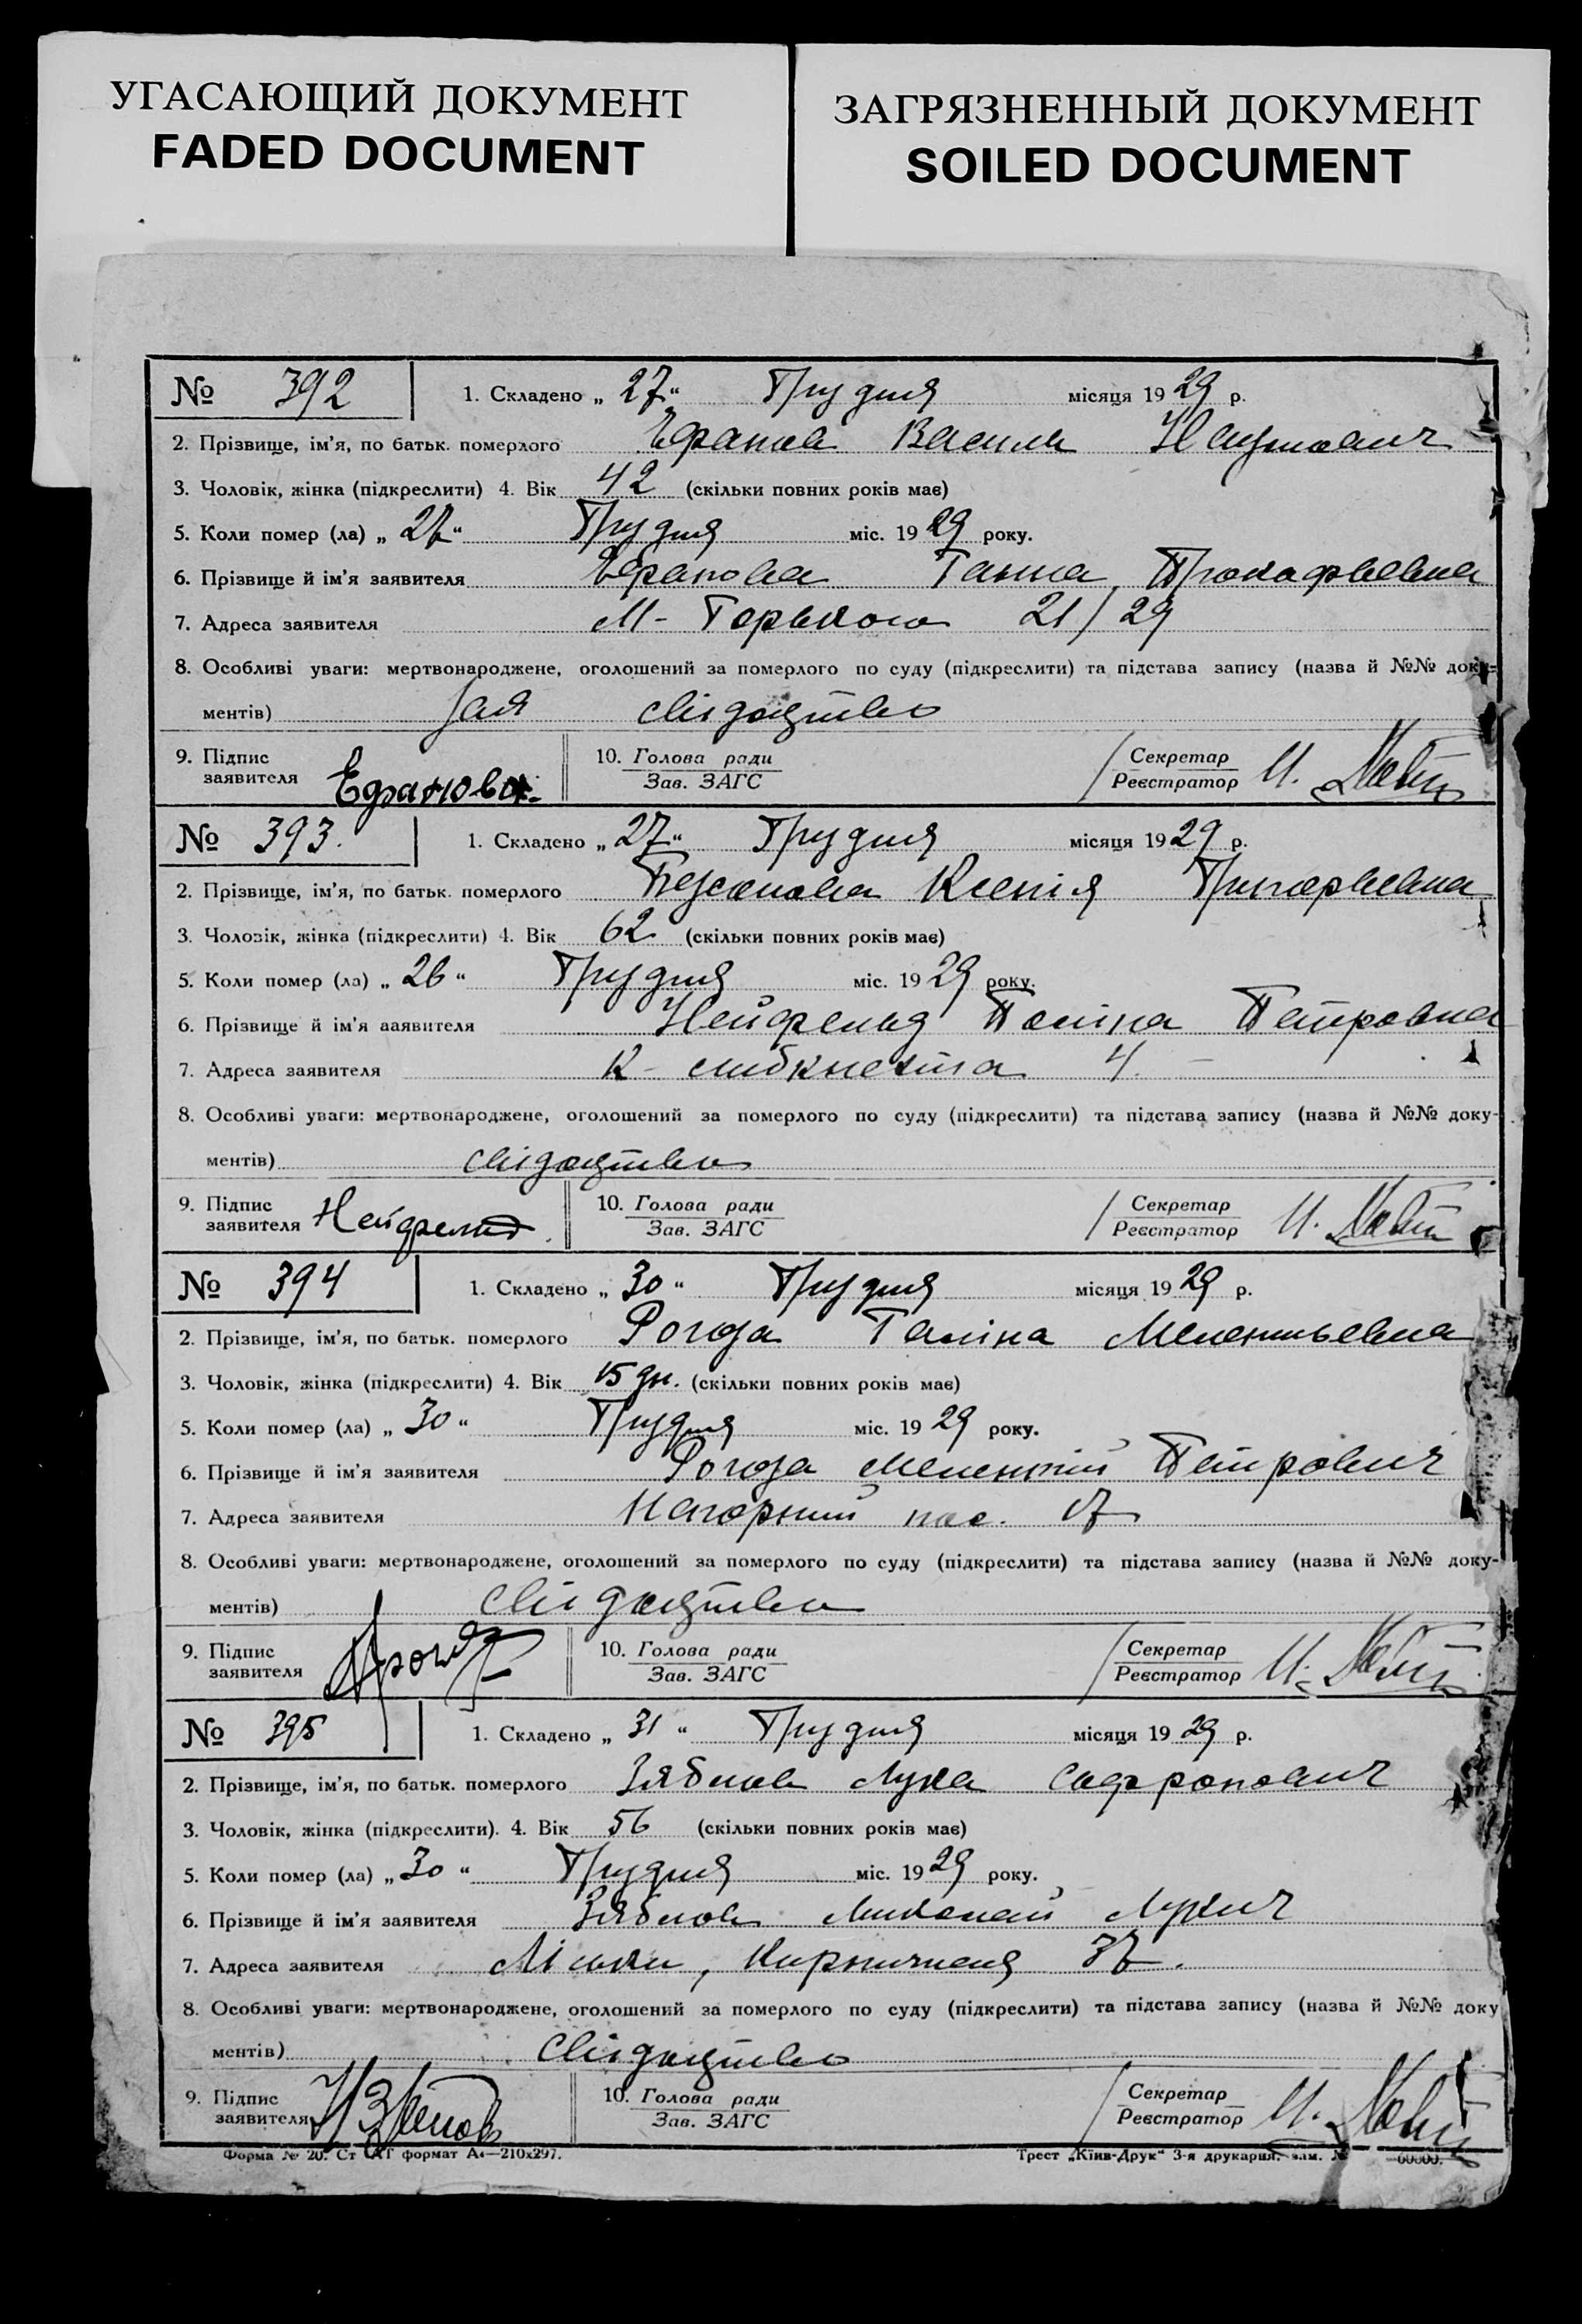 УГАСАЮЩИЙ ДОКУМЕНТ
FADED DOCUMENT
ЗАГРЯЗНЕННЫЙ ДОКУМЕНТ
SOILED DOCUMENT
№ 392 1. Складено „ 27 “ Грудня місяця 19 29 р.
2. Прізвище, ім’я, по батьк. померлого Ефанов Василь Наумович
3. Чоловік, жінка (підкреслити) 4. Вік 42 (скільки повних років має)
5. Коли помер (ла) „ 27 “ Грудня міс. 19 29 року.
6. Прізвище й ім’я заявителя Ефанова Ганна Прокофьевна
7. Адреса заявителя М - Горького 21/29
8. Особливі уваги: мертвонароджене, оголошений за померлого по суду (підкреслити) та підстава запису (назва й №№ доку-
ментів) свідоцтво
9. Підпис заявителя Ефанова. 10. Голова ради Зав. ЗАГС Секретар Реєстратор И.
№ 393. 1. Складено „ 27 “ Грудня місяця 19 29 р.
2. Прізвище, ім’я, по батьк. померлого Ксенія Григорьевна
3. Чоловік, жінка (підкреслити) 4. Вік 62 (скільки повних років має)
5. Коли помер (ла) „ 26 “ Грудня міс. 19 29 року.
6. Прізвище й ім’я заявителя Нейфельд Поліна Петровна
7. Адреса заявителя К - Либкнехта 4.
8. Особливі уваги: мертвонароджене, оголошений за померлого по суду (підкреслити) та підстава запису (назва й №№ доку-
ментів) свідоцтво
9. Підпис заявителя Нейфельд 10. Голова ради Зав. ЗАГС Секретар Реєстратор И.
№ 394 1. Складено „ 30 “ Грудня місяця 19 29 р.
2. Прізвище, ім’я, по батьк. померлого Рогоза Галіна Мелентьевна
3. Чоловік, жінка (підкреслити) 4. Вік 15 дн. (скільки повних років має)
5. Коли помер (ла) „ 30 “ Грудня міс. 19 29 року.
6. Прізвище й ім’я заявителя Рогоза Мелентій Петрович
7. Адреса заявителя Нагорний пос. 17
8. Особливі уваги: мертвонароджене, оголошений за померлого по суду (підкреслити) та підстава запису (назва й №№ доку-
ментів) свідоцтво
9. Підпис заявителя 10. Голова ради Зав. ЗАГС Секретар Реєстратор И.
№ 395 1. Складено „ 31 “ Грудня місяця 19 29 р.
2. Прізвище, ім’я, по батьк. померлого Зяблов Лука Сафронович
3. Чоловік, жінка (підкреслити). 4. Вік 56 (скільки повних років має)
5. Коли помер (ла) „ 30 “ Грудня міс. 19 29 року.
6. Прізвище й ім’я заявителя Зяблов Миколай Лукич
7. Адреса заявителя Кирпичная 37.
8. Особливі уваги: мертвонароджене, оголошений за померлого по суду (підкреслити) та підстава запису (назва й №№ доку
ментів) свідоцтво
9. Підпис заявителя 10. Голова ради Зав. ЗАГС Секретар Реєстратор И.
Форма № 20. Ст формат А4—210х297. Трест „Київ-Друк“ 3-я друкарня. зам. № 60000.